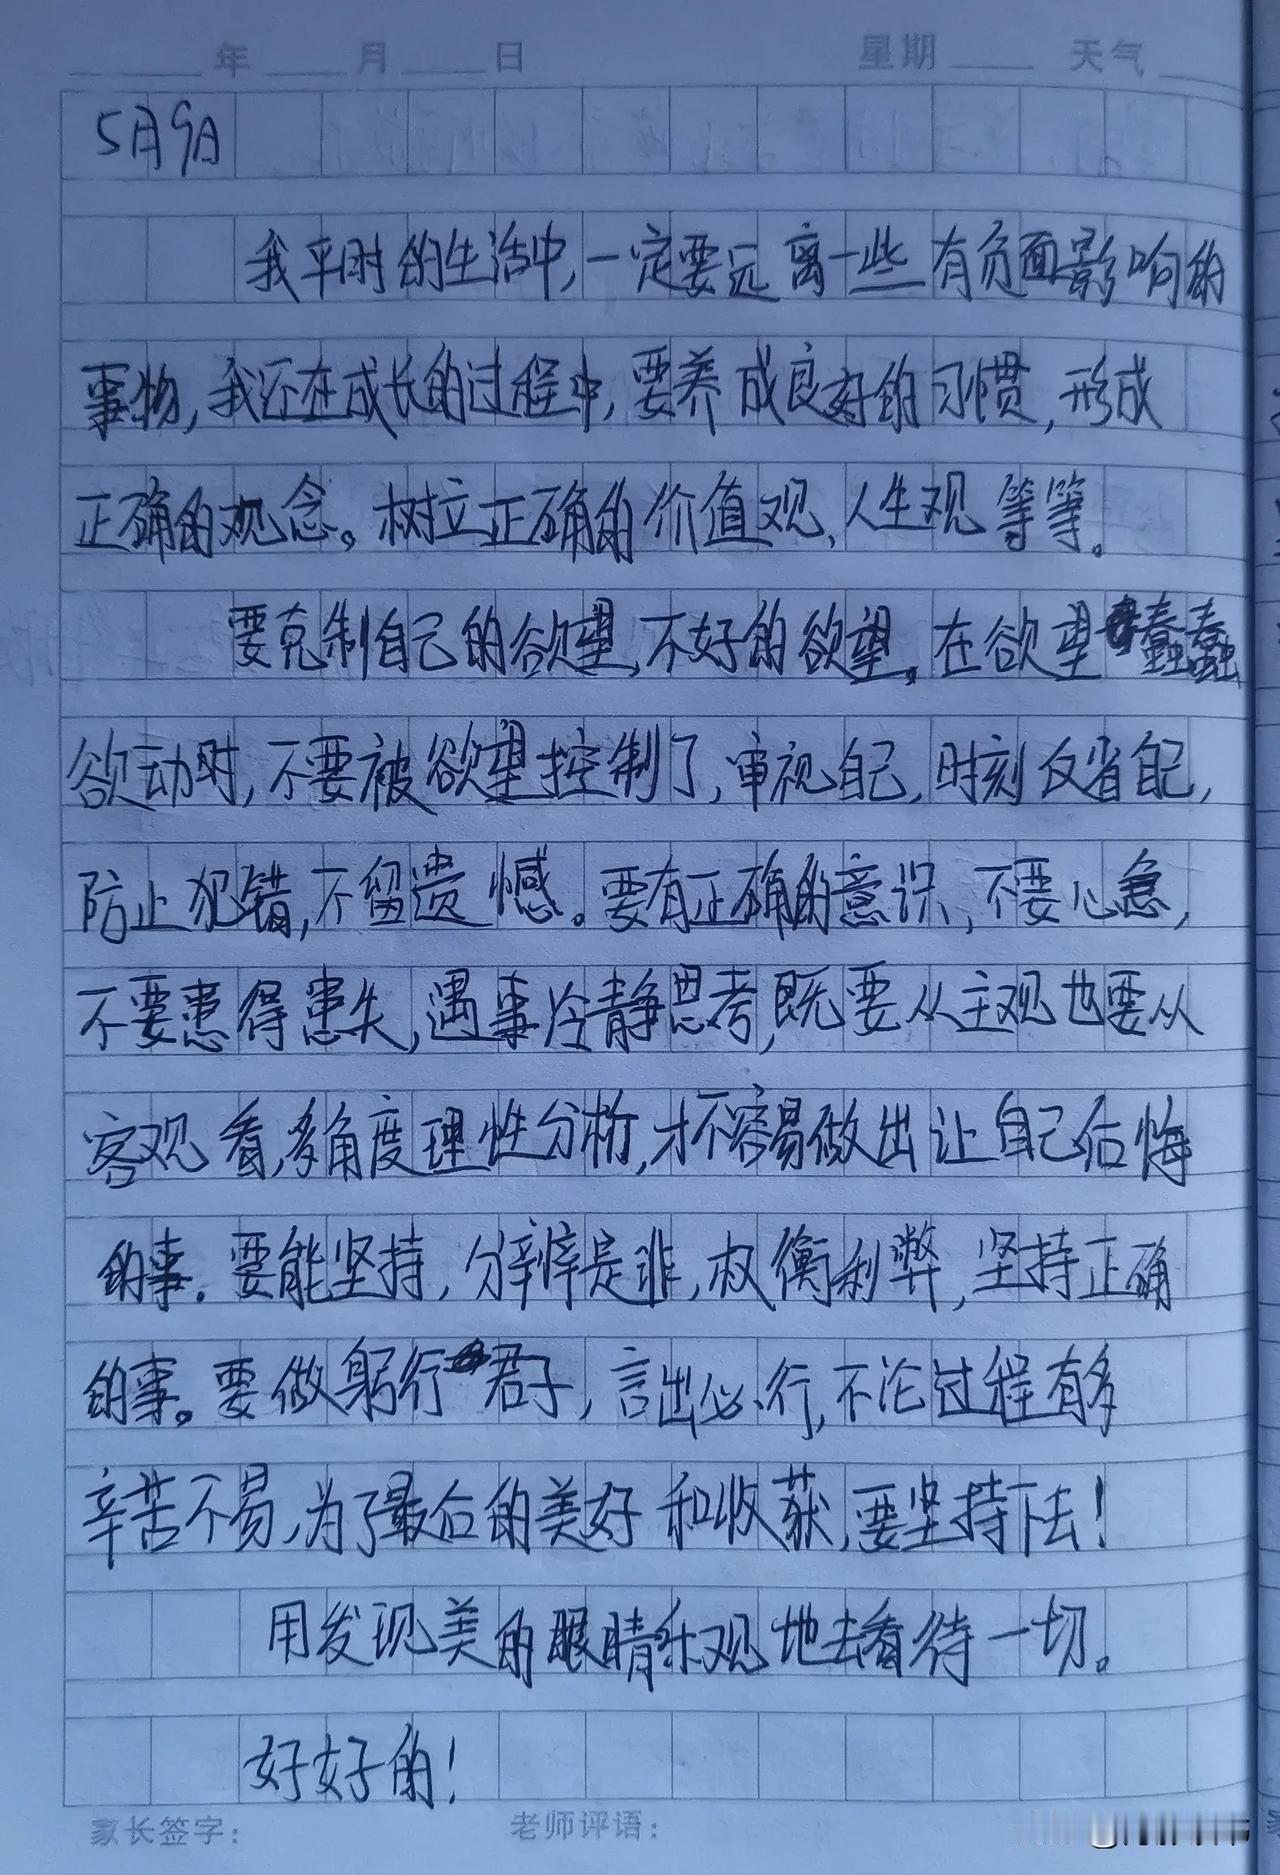 年 月 日 星期 天气
5月9日
我平时的生活中,一定要远离一些有负面影响的
事物,我还在成长的过程中,要养成良好的习惯,形成
正确的观念。树立正确的价值观,人生观等等。
要克制自己的欲望,不好的欲望。在欲望蠢蠢
欲动时,不要被欲望控制了,审视自己,时刻反省自己,
防止犯错,不留遗憾。要有正确的意识,不要心急,
不要患得患失,遇事冷静思考,既要从主观也要从
客观看,多角度理性分析,才不容易做出让自己后悔
的事。要能坚持,分辨是非,权衡利弊,坚持正确
的事。要做躬行君子,言出必行,不论过程有多
辛苦不易,为了最后的美好和收获,要坚持下去!
用发现美的眼睛乐观地去看待一切。
好好的!
家长签字: 老师评语: